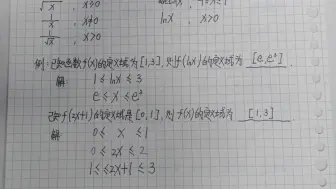 1/x , x≠0
1/√x , x>0
lnx , x>0
例: 已知函数f(x)的定义域为[1,3],则f(lnx)的定义域为 [e,e³]
解 1≤lnx≤3
e≤x≤e³
f(2x+1)的定义域是[0,1],则f(x)的定义域为 [1,3]
解 0≤ x ≤1
0≤2x≤2
1≤2x+1≤3